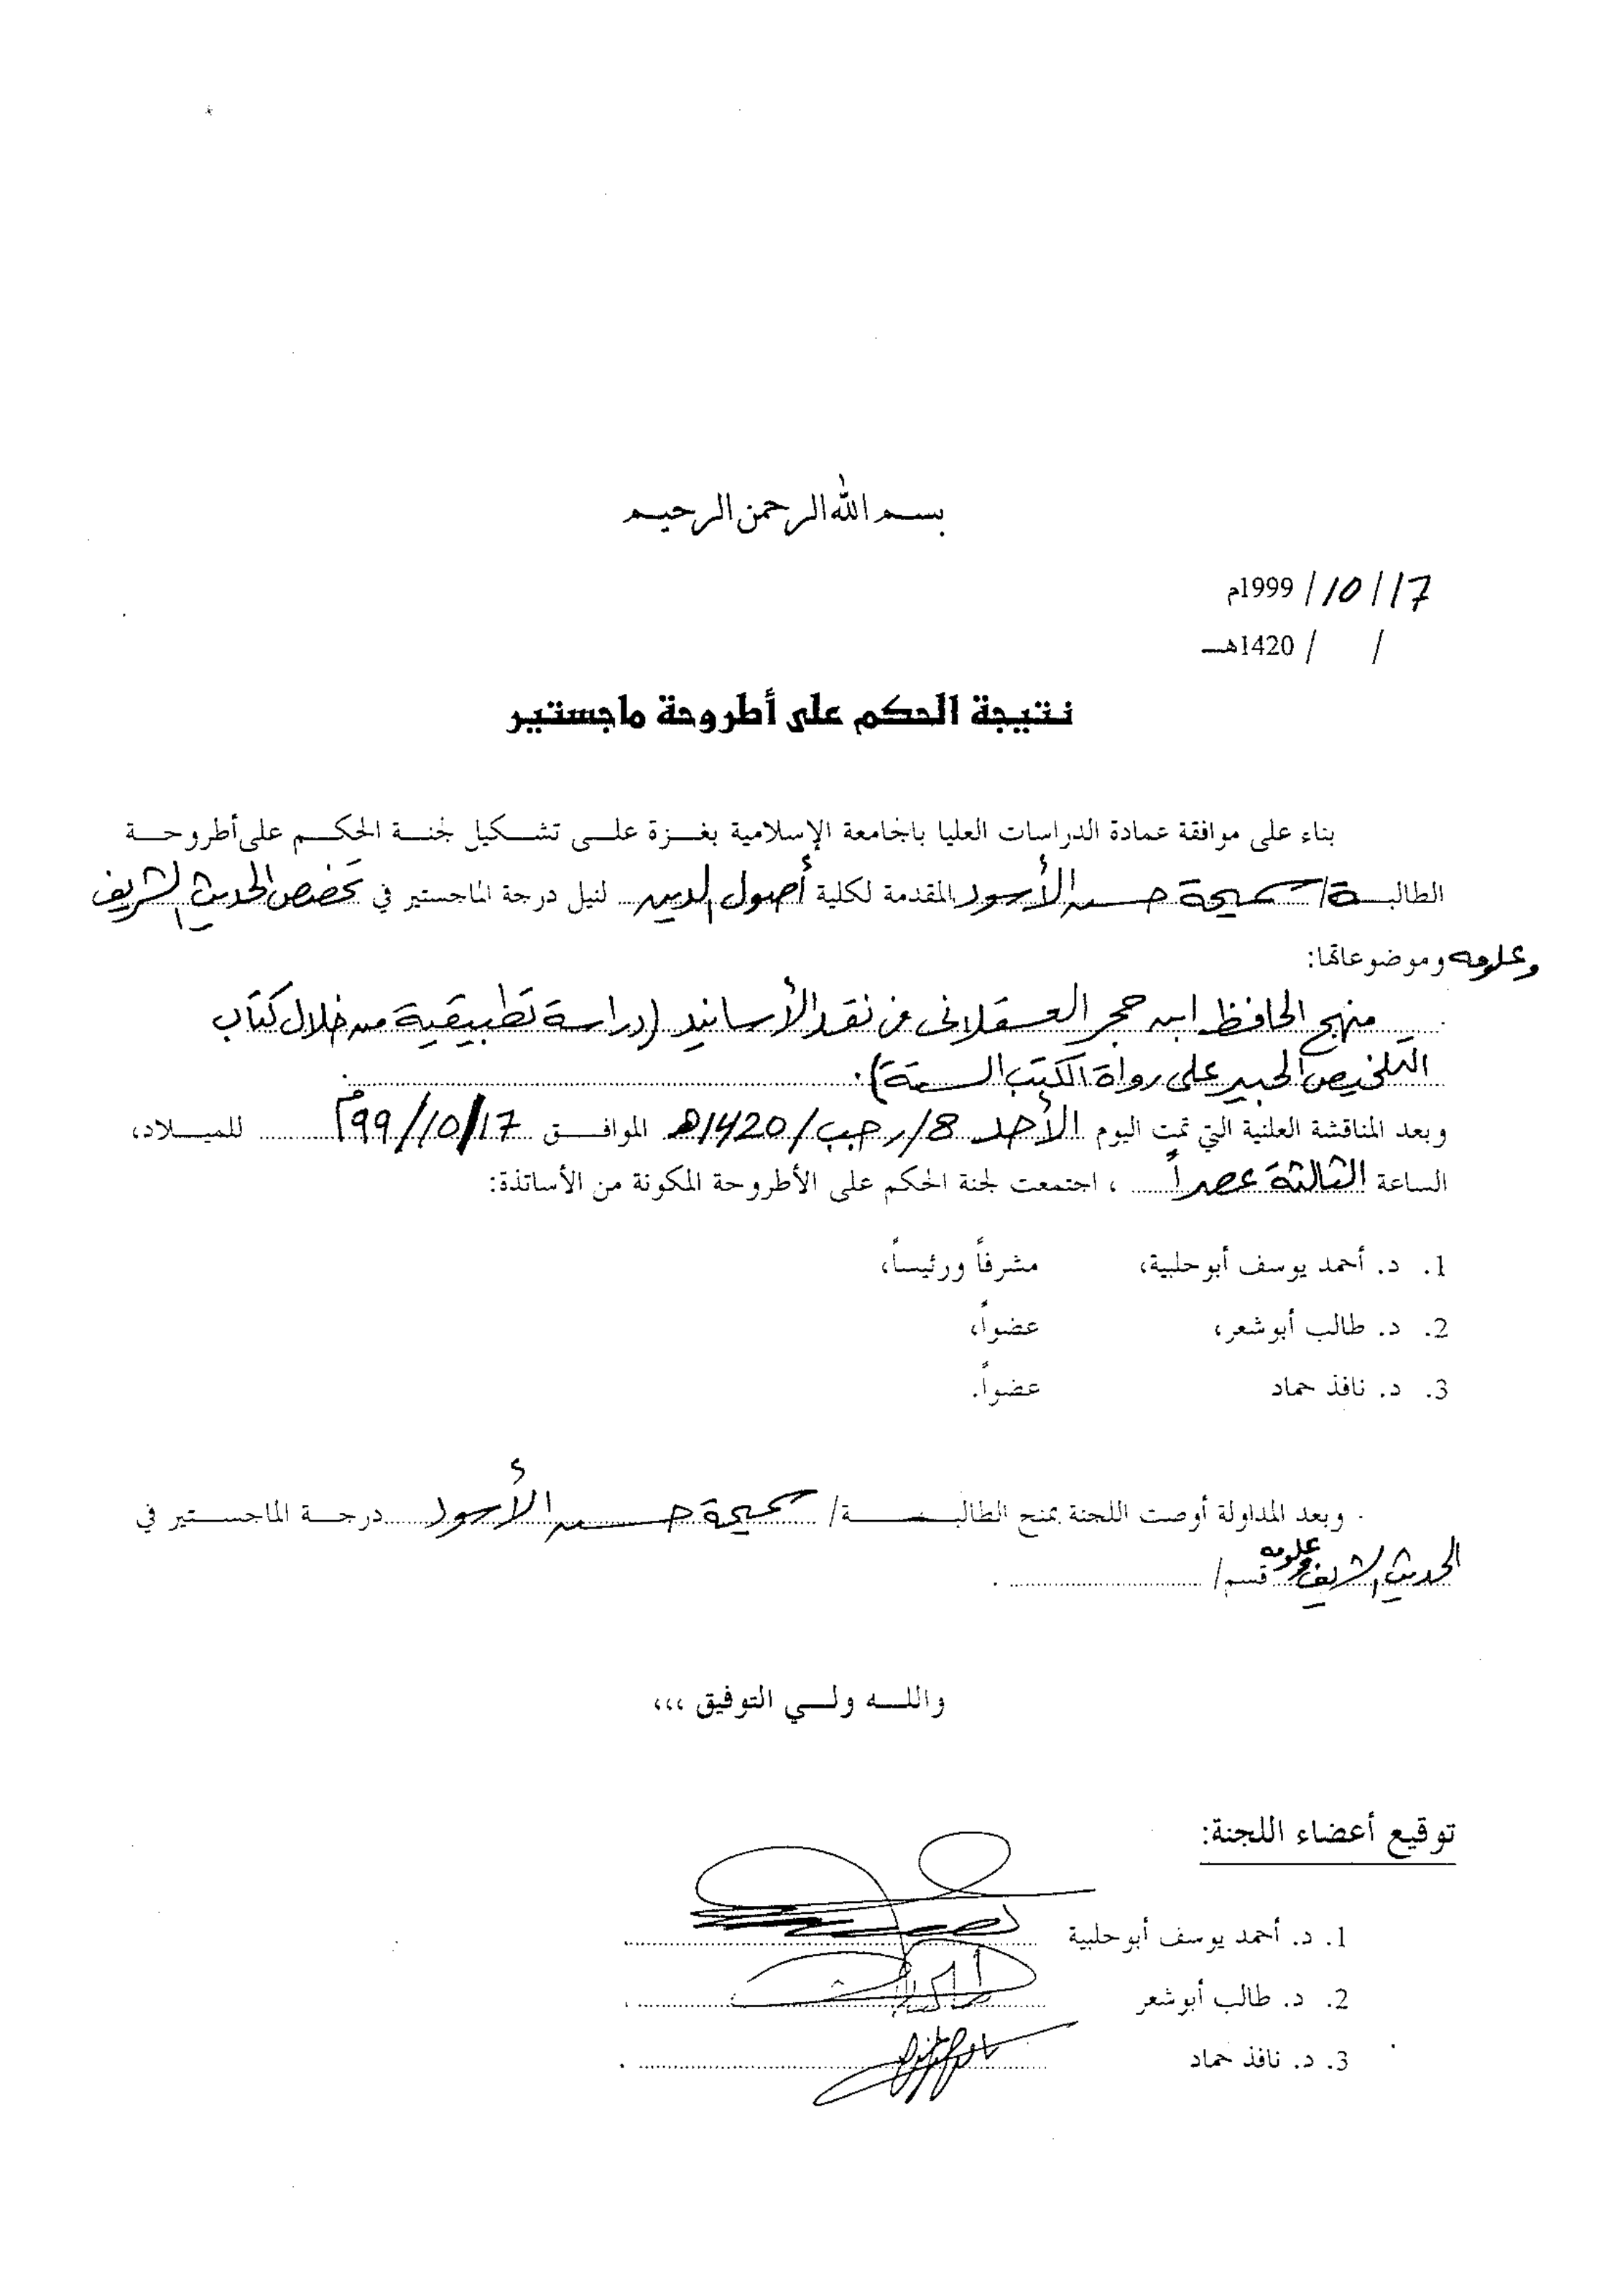 بسم الله الرحمن الرحيم
17/10/1999م
/ /1420هـ
نتيجة الحكم على أطروحة ماجستير
بناء على موافقة عمادة الدراسات العليا بالجامعة الإسلامية بغزة على تشكيل لجنة الحكم على أطروحة
الطالبة/ سميحة حسن الأسود المقدمة لكلية أصول الدين لنيل درجة الماجستير في تخصص الحديث الشريف
وعلومه وموضوعاتها:
منهج الحافظ ابن حجر العسقلاني في نقد الأسانيد (دراسة تطبيقية من خلال كتاب
التلخيص الحبير على رواة الكتب الستة).
وبعد المناقشة العلنية التي تمت اليوم الأحد 8/رجب/1420هـ الموافق 17/10/99م للميلاد،
الساعة الثالثة عصراً، اجتمعت لجنة الحكم على الأطروحة المكونة من الأساتذة:
1. د. أحمد يوسف أبوحلبية، مشرفاً ورئيساً،
2. د. طالب أبوشعر، عضواً،
3. د. نافذ حماد عضواً.
وبعد المداولة أوصت اللجنة بمنح الطالبة/ سميحة حسن الأسود درجة الماجستير في
الحديث الشريف وعلومه قسم/ .
والله ولي التوفيق ،،،
توقيع أعضاء اللجنة:
1. د. أحمد يوسف أبوحلبية
2. د. طالب أبوشعر
3. د. نافذ حماد